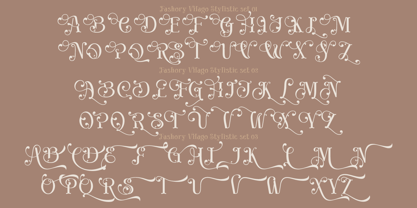 Jashery Village Stylistic set 01
A B C D E F G H I J K L M
N O P Q R S T U V W X Y Z
Jashery Village Stylistic set 02
A B C D E F G H I J K L M N
O P Q R S T U V W X Y Z
Jashery Village Stylistic set 03
A B C D E F G H I J K L M N
O P Q R S T U V W X Y Z